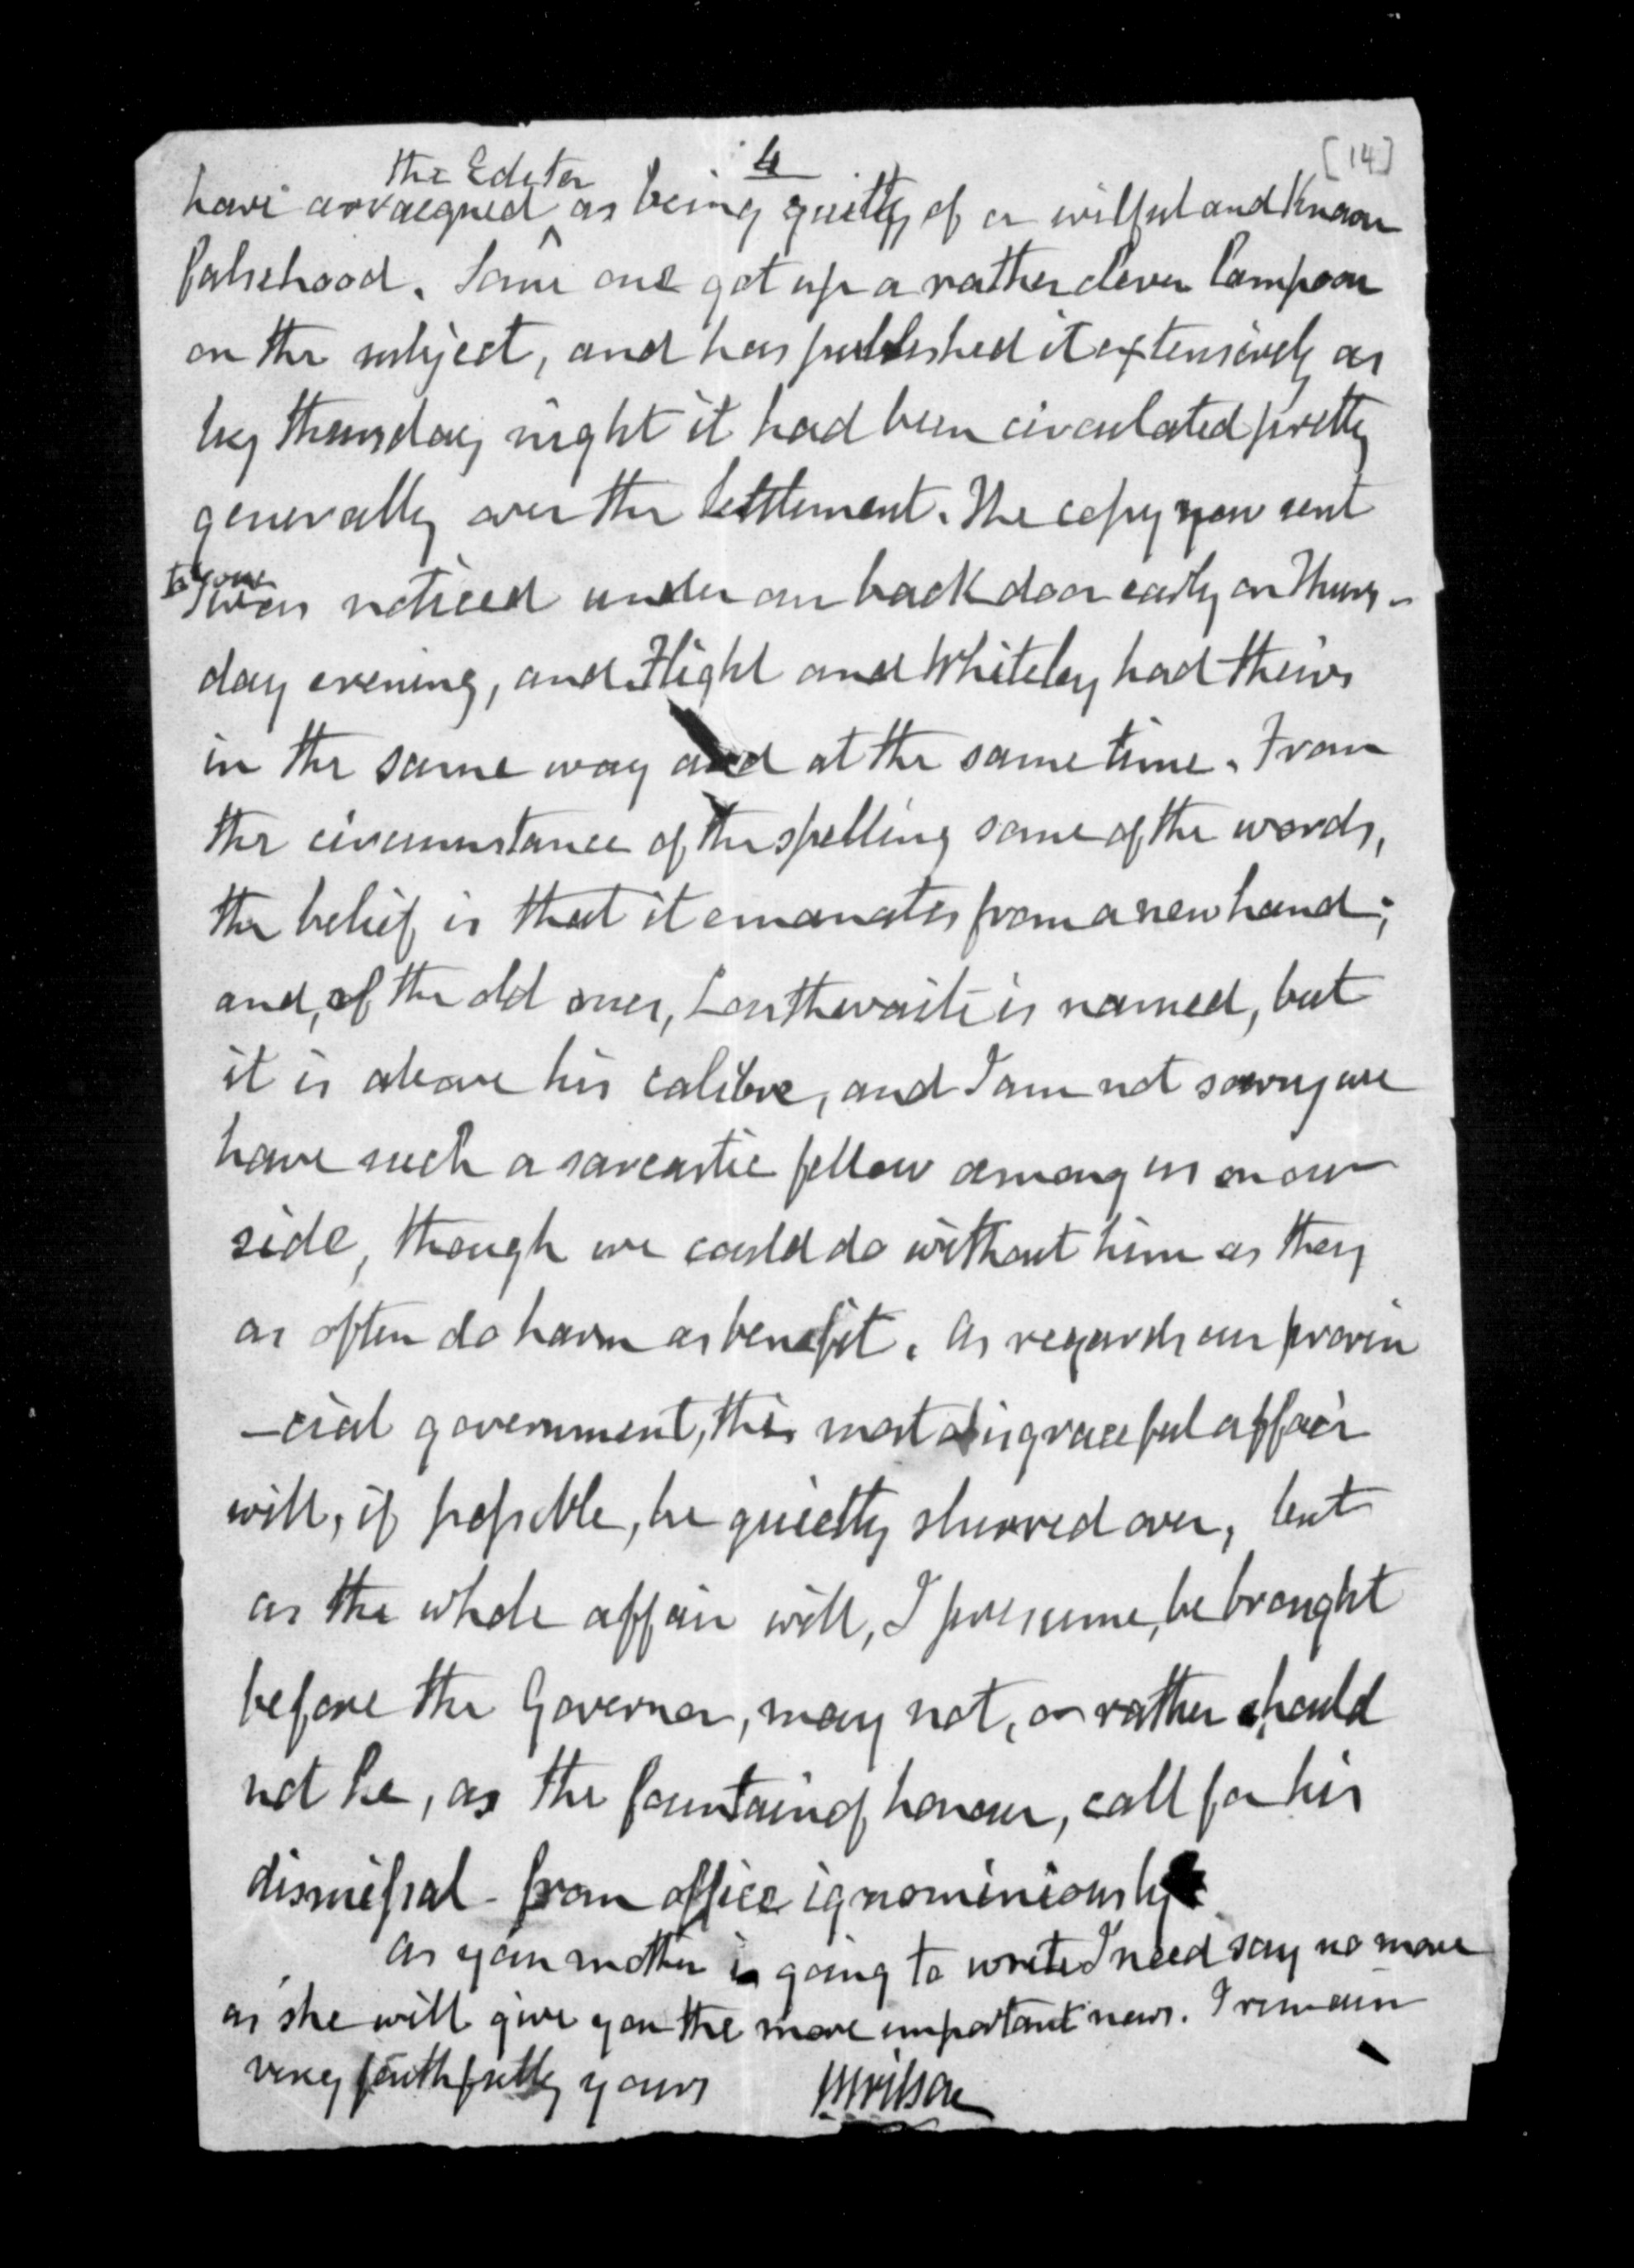 4
[14]
the Editor
have arraigned ^ as being guilty of a wilful and known
falsehood. Some one got up a rather clever lampoon
on the subject, and has published it extensively as
by thursday night it had been circulated pretty
generally over the Settlement. The copy now sent
to you
was noticed under our back door early on Thurs-
day evening, and Flight and Whiteley had theirs
in the same way and at the same time. From
the circumstance of the spelling some of the words,
the belief is that it emanates from a new hand;
and, of the old ones, Louthwaite is named, but
it is above his calibre, and I am not sorry we
have such a sarcastic fellow among us on our
side, though we could do without him as they
as often do harm as benefit. As regards our provin
-cial government, this most disgraceful affair
will, if possible, be quietly slurred over, but
as the whole affair will, I presume, be brought
before the Governor, may not, or rather should
not he, as the fountain of honour, call for his
dismissal from office ignominiously
As your mother is going to write I need say no more
as she will give you the more important news. I remain
very faithfully yours